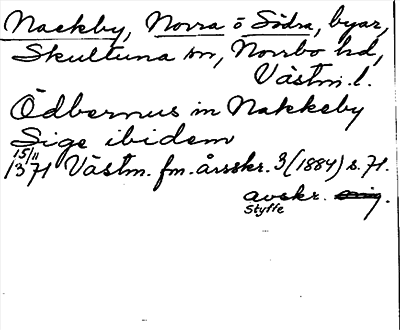 Nackby, Norra o Södra, byar,
Skultuna sn, Norrbo hd,
Västm. l.
Ödbernus in Nakkeby
Sige ibidem
15/11
1371 Västm. fm. årsskr. 3 (1884) s. 71.
avskr. orig.
Styffe